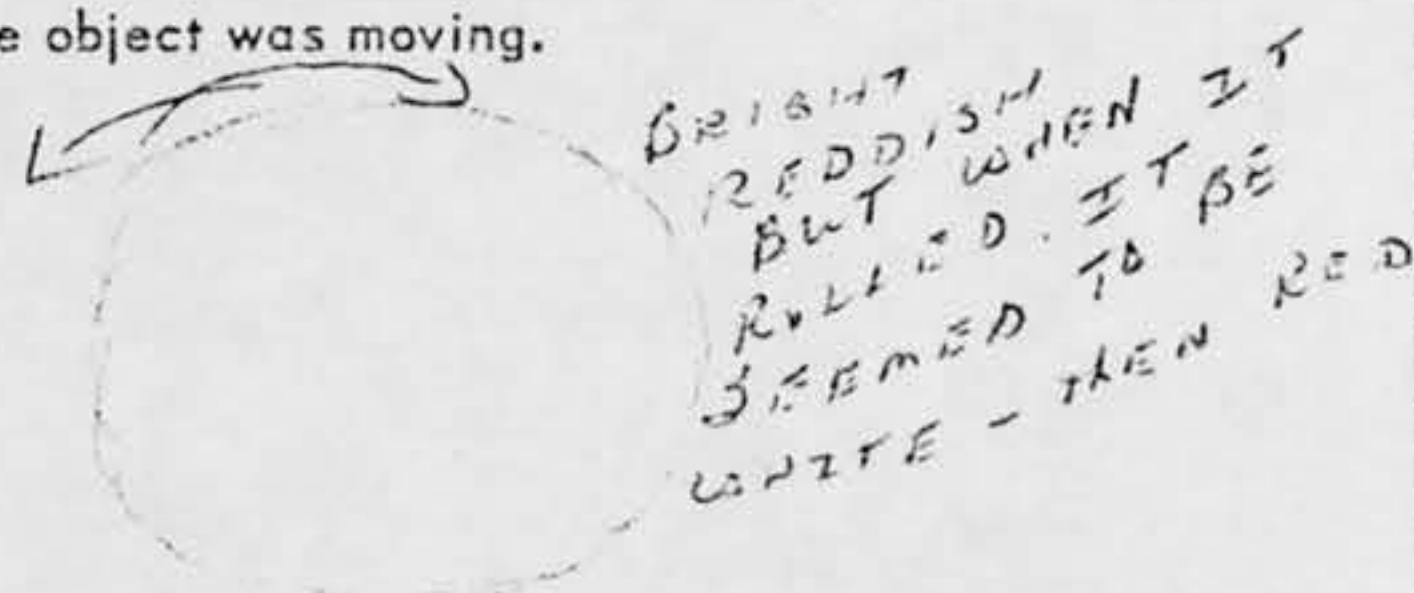 e object was moving.
BRIGHT
REDDISH
BUT WHEN IT
ROLLED. IT
SEEMED TO BE
WHITE - THEN RED